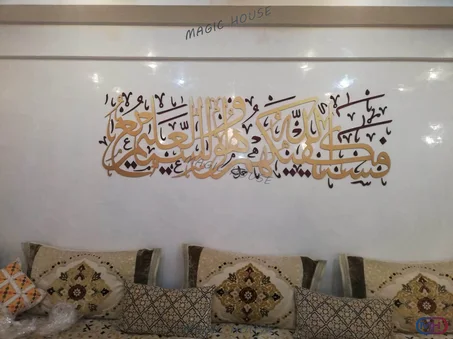 MAGIC HOUSE
فسيكفيكهم الله وهو السميع العليم
MAGIC HOUSE